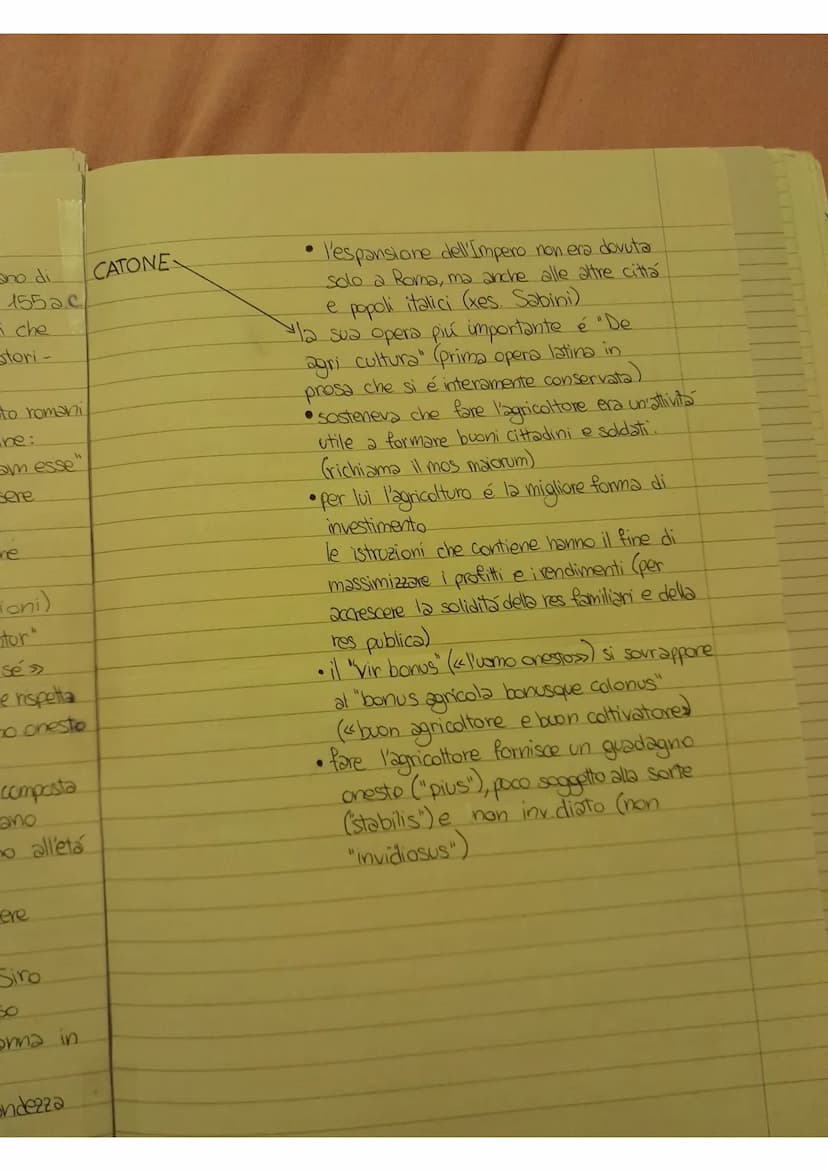 ano di
155 a.C.
i che
stori-
to romani
ne:
am esse"
sere
ne
ioni)
tor"
sé»
e rispetta
no onesto
composta
ano
no all'etá
ere
Siro
so
onna in
ndezza
CATONE
• l'espansione dell'Impero non era dovuta
solo a Roma, ma anche alle altre cittá
e popoli italici (xes. Sabini)
la sua opera piú importante é "De
agri cultura" (prima opera latina in
prosa che si é interamente conservata)
• sosteneva che fare l'agricoltore era un'attivitá
utile a formare buoni cittadini e soldati.
(richiama il mos maiorum)
• per lui l'agricoltura é la migliore forma di
investimento
le istruzioni che contiene hanno il fine di
massimizzare i profitti e i rendimenti (per
accrescere la soliditá della res familiari e della
res publica)
• il "vir bonus" («l'uomo onesto») si sovrappone
al "bonus agricola bonusque colonus"
(«buon agricoltore e buon coltivatore»)
• fare l'agricoltore fornisce un guadagno
onesto ("pius"), poco soggetto alla sorte
("stabilis") e non invidiato (non
"invidiosus")